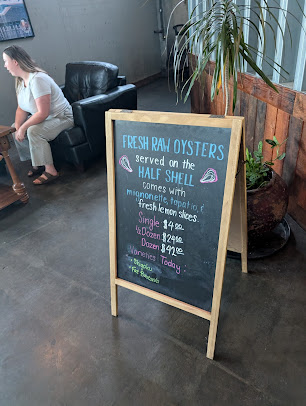 FRESH RAW OYSTERS
served on the
HALF SHELL
comes with
mignonette, tapatio, &
fresh lemon slices.
Single $4.00
½ Dozen $24.00
Dozen $42.00
Varieties Today
- Shigoku
- Fat Bastards